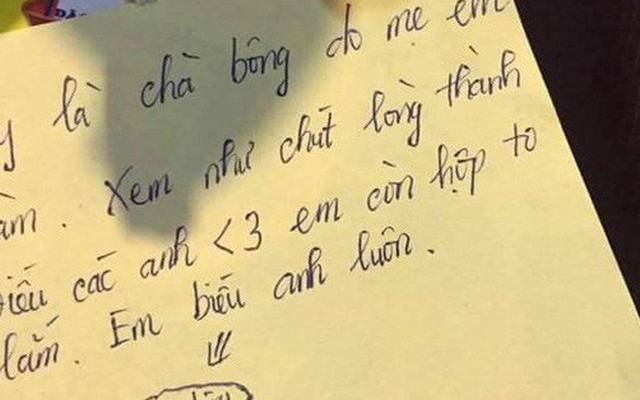 là chà bông do mẹ em
Xem như chút lòng thành
biếu các anh <3 em còn hộp to
lắm. Em biếu anh luôn.